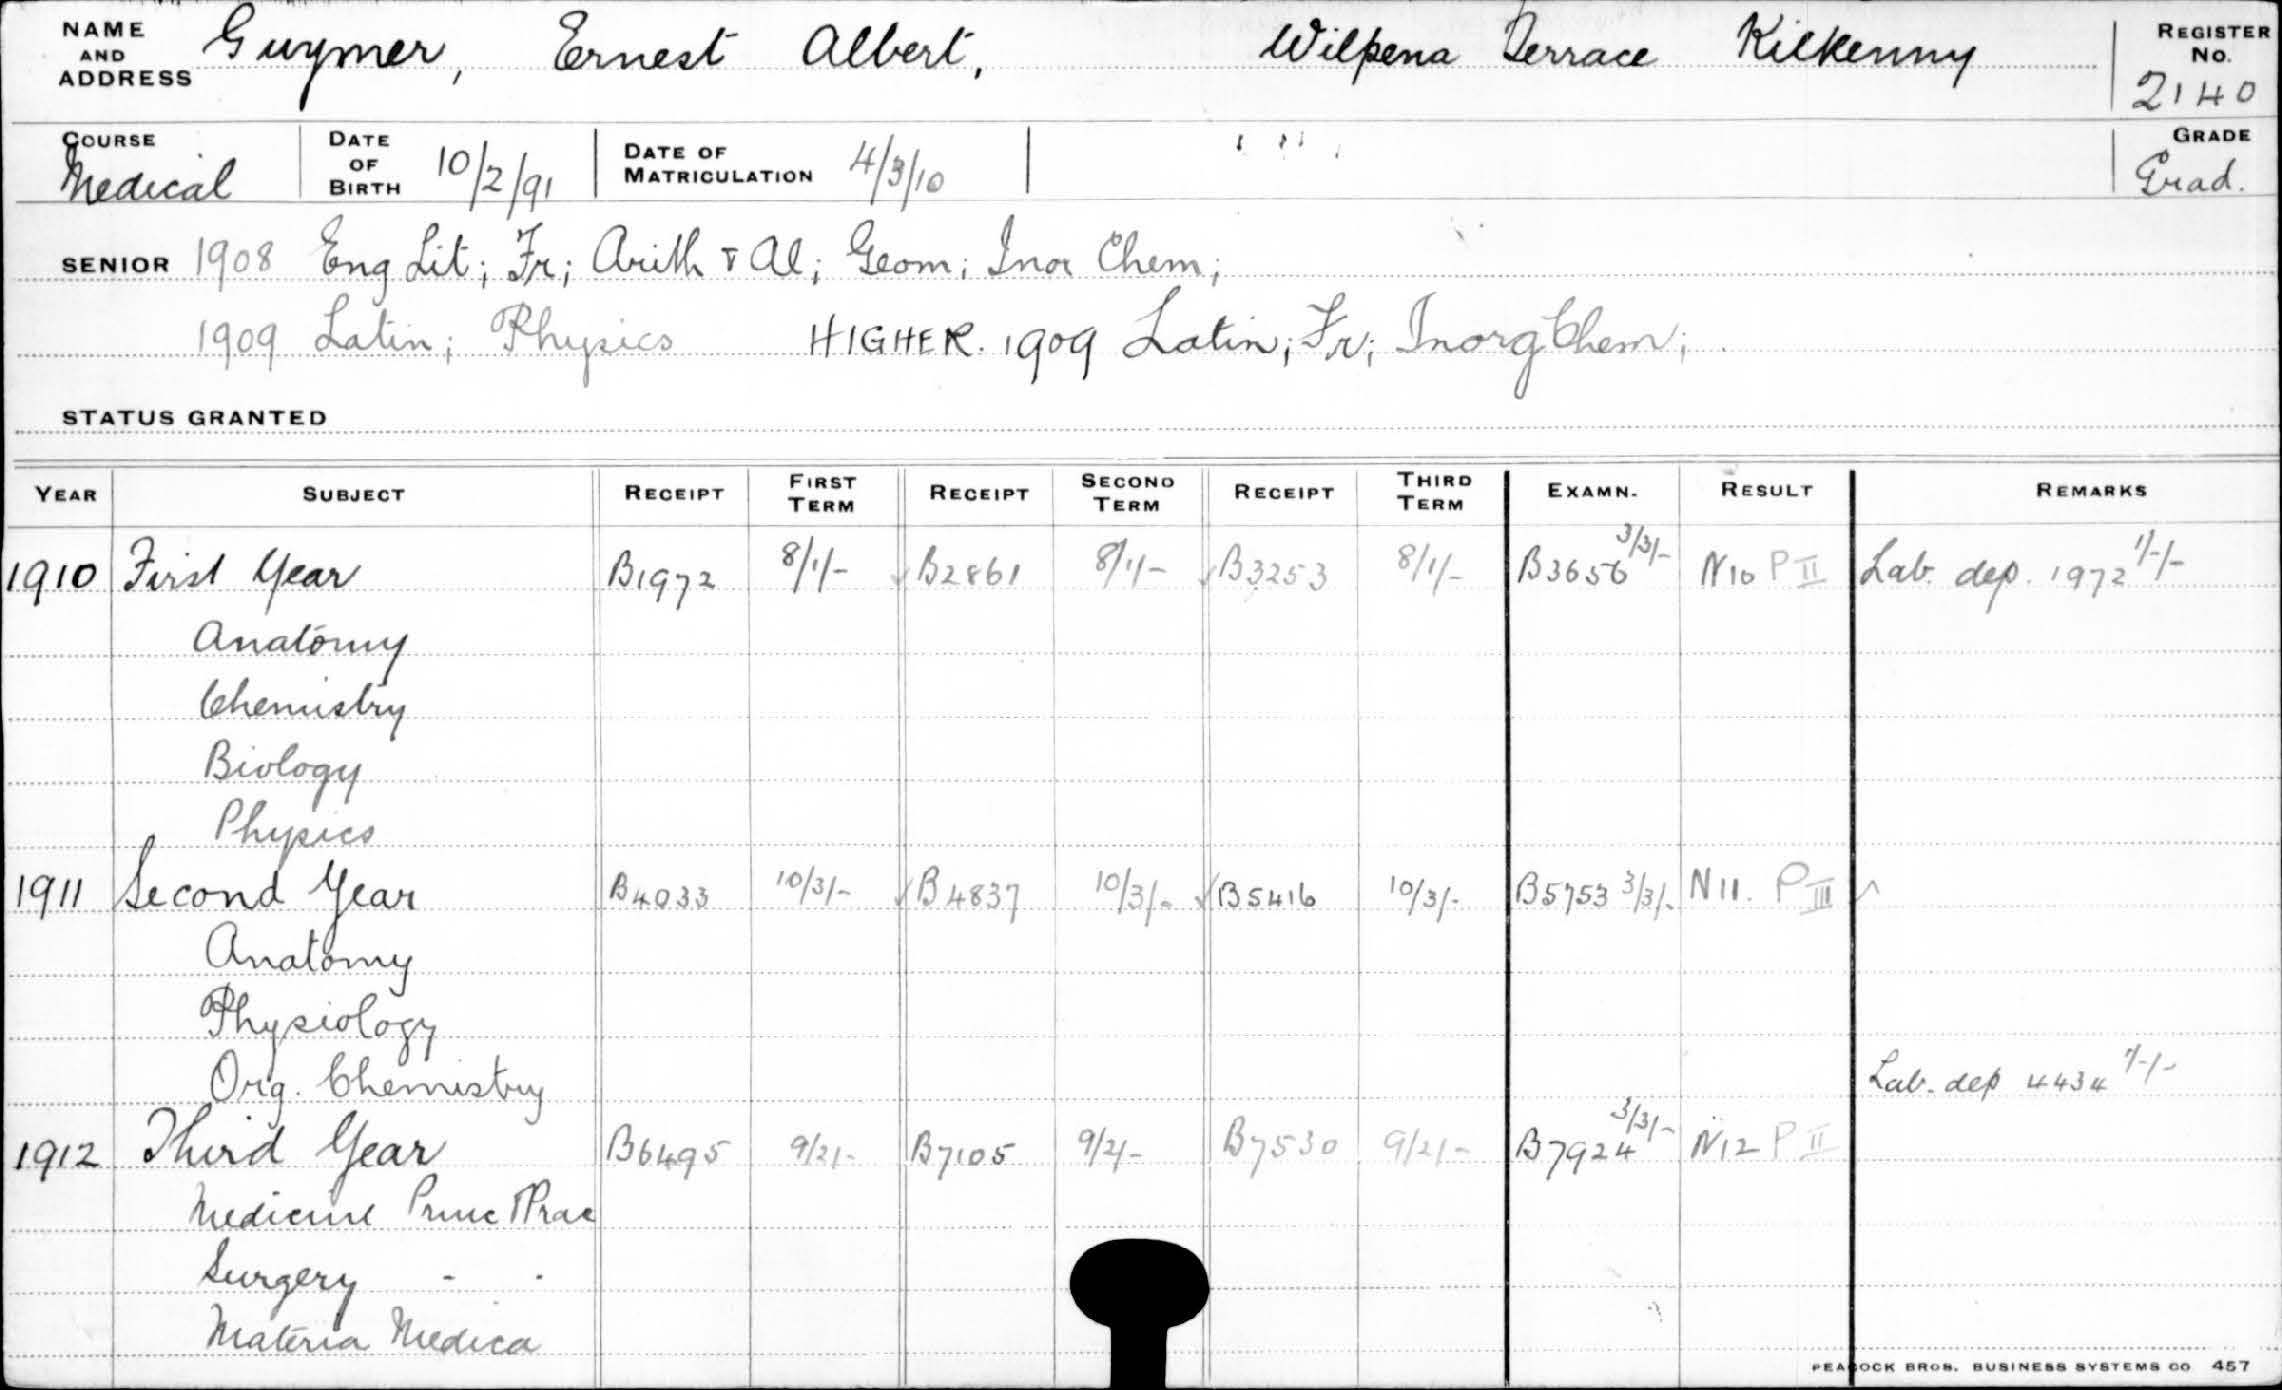 NAME AND ADDRESS Guymer, Ernest Albert, Wilpena Terrace Kilkenny REGISTER No. 2140
COURSE Medical DATE OF BIRTH 10/2/91 DATE OF MATRICULATION 4/3/10 GRADE Grad.
SENIOR 1908 Eng Lit; Fr; Arith & Al; Geom; Inor Chem;
1909 Latin; Physics HIGHER. 1909 Latin; Fr; Inorg Chem;
STATUS GRANTED
YEAR SUBJECT RECEIPT FIRST TERM RECEIPT SECOND TERM RECEIPT THIRD TERM EXAMN. RESULT REMARKS
1910 First Year B1972 8/1/- B2861 8/1/- B3253 8/1/- B3656 3/3/- N10 P II Lab. dep. 1972 1/-/-
Anatomy
Chemistry
Biology
Physics
1911 Second Year B4033 10/3/- B4837 10/3/- B5416 10/3/- B5753 3/3/- N11. P III
Anatomy
Physiology
Org. Chemistry Lab. dep 4434 1/-/-
1912 Third Year B6495 9/2/- B7105 9/2/- B7530 9/2/- B7924 3/3/- N12 P II
Medicine Princ & Prac
Surgery - -
Materia Medica
PEACOCK BROS. BUSINESS SYSTEMS CO 457